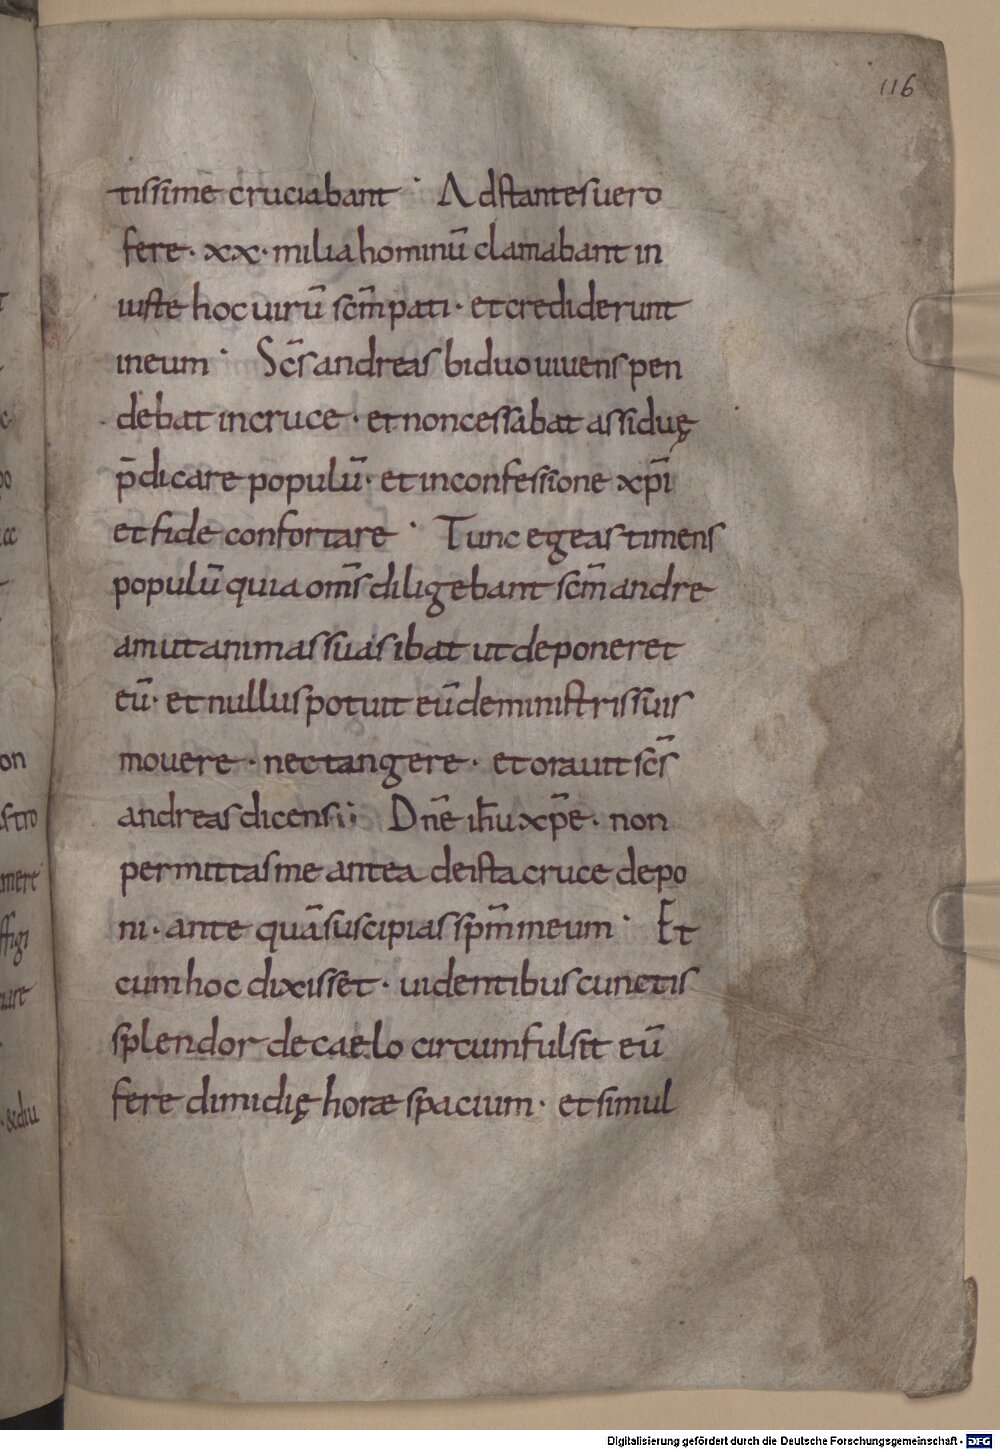 116
tissime cruciabant · Adstantes uero
fere · xx · milia hominū clamabant in
iuste hoc uirū scm̄ pati · et crediderunt
in eum · Sc̄s andreas biduo uiuens pen
debat in cruce · et non cessabat assiduę
p̄dicare populū · et in confessione xp̄i
et fide confortare · Tunc egeas timens
populū quia om̄s diligebant scm̄ andre
am ut animas suas ibat ut deponeret
eū · et nullus potuit eū de ministris suis
mouere · nec tangere · et orauit sc̄s
andreas dicens ; Dn̄e ih̄u xp̄e · non
permittas me antea de ista cruce depo
ni · ante quā suscipias spm̄ meum · Et
cum hoc dixisset · uidentibus cunctis
splendor de caelo circumfulsit eū
fere dimidię horæ spacium · et simul
on
stro
mere
ffigi
Digitalisierung gefördert durch die Deutsche Forschungsgemeinschaft - DFG